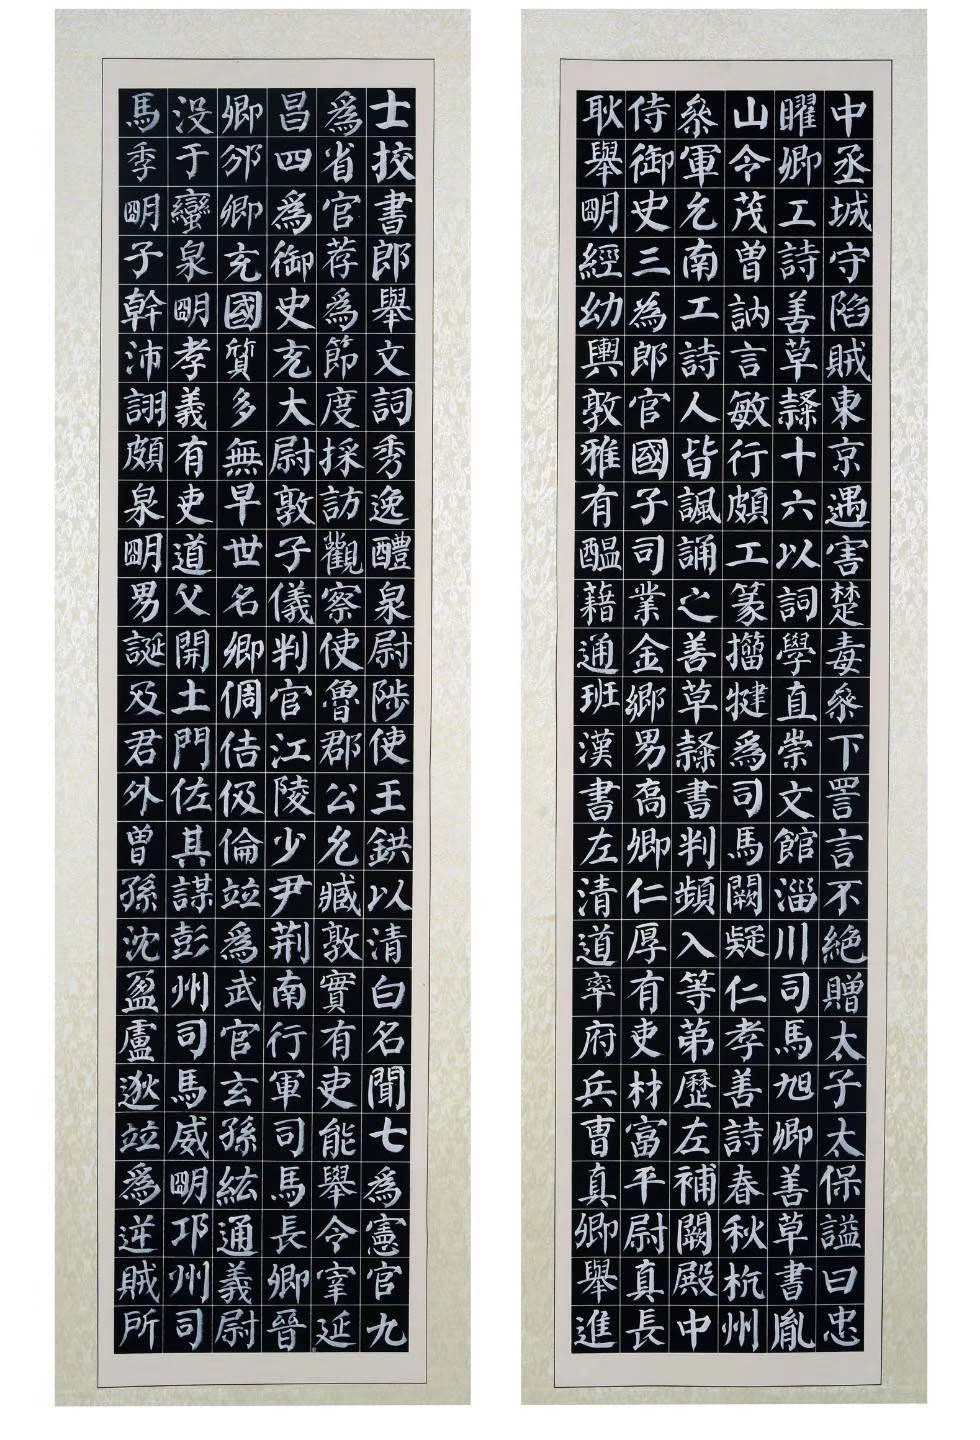 中丞城守陷賊東京遇害楚毒叅下詈言不絕贈太子太保謚曰忠
曜卿工詩善草隸十六以詞學直崇文館淄川司馬旭卿善草書胤
山令茂曽訥言敏行頗工篆籒犍爲司馬闕疑仁孝善詩春秋杭州
叅軍允南工詩人皆諷誦之善草隸書判頻入等弟歷左補闕殿中
侍御史三為郎官國子司業金鄉男喬卿仁厚有吏材富平尉真長
耿舉朙經幼輿敦雅有醞藉通班漢書左清道率府兵曹真卿舉進
士挍書郎舉文詞秀逸醴泉尉陟使王鉷以清白名聞七爲憲官九
爲省官荐爲節度採訪觀察使魯郡公允臧敦實有吏能舉令宰延
昌四爲御史充大尉敦子儀判官江陵少尹荆南行軍司馬長卿晉
卿邠卿充國質多無早世名卿倜佶伋倫並爲武官玄孫紘通義尉
没于蠻泉朙孝義有吏道父開土門佐其謀彭州司馬威朙邛州司
馬季朙子幹沛詡頗泉朙男誕及君外曽孫沈盈盧逖並爲逆賊所